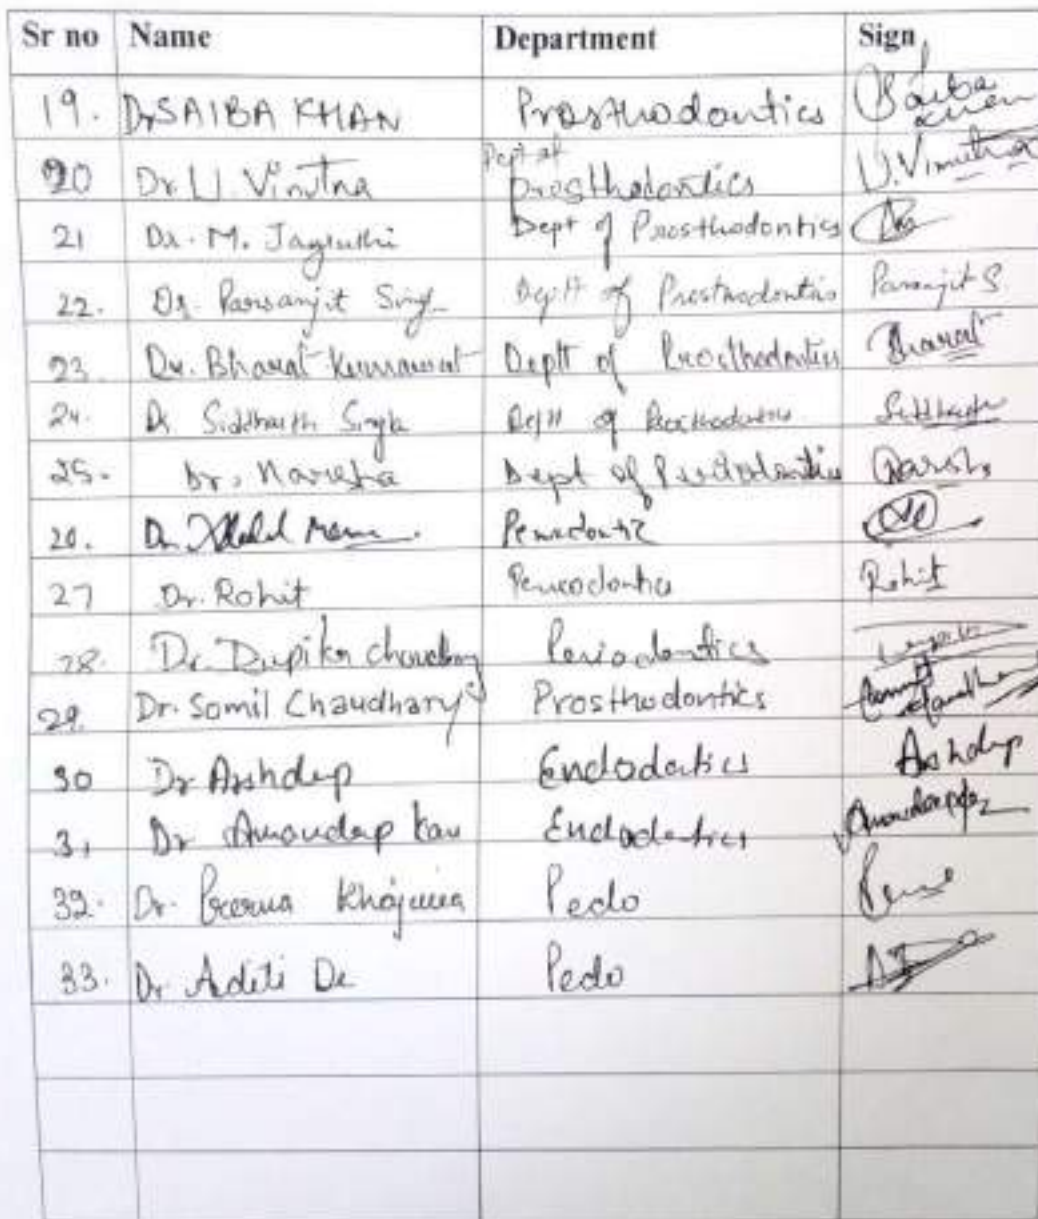 Sr no Name Department Sign
19. Dr SAIBA KHAN Prosthodontics Saiba Khan
20 Dr. U. Vinutna Dept of Prosthodontics U. Vinutna
21 Dr. M. Jagruthi Dept of Prosthodontics
22. Dr. Parsanjit Singh Deptt of Prosthodontics Parsanjit S.
23. Dr. Bharat Kumawat Deptt of Prosthodontics Bharat
24. Dr Siddharth Singla Deptt of Prosthodontics Siddharth
25. Dr. Dept of
26. Dr.
27 Dr. Rohit Periodontics Rohit
28. Dr. Dupika Choudhary Periodontics
29. Dr. Somil Chaudhary Prosthodontics
30 Dr Arshdep Endodontics Arshdep
31 Dr Amandeep Kaur Endodontics
32. Dr. Prerna Khajuria Pedo
33. Dr Aditi De Pedo